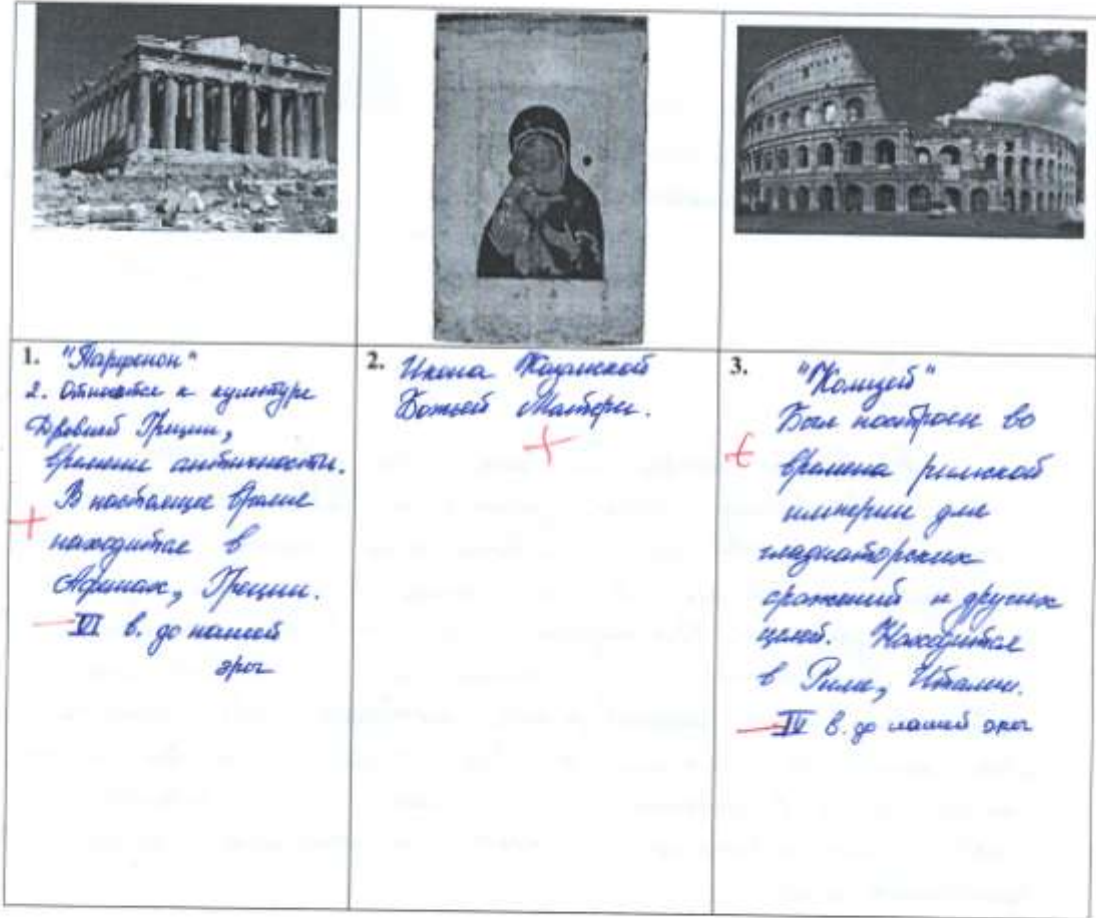 1. "Парфенон"
2. Относится к культуре
Древней Греции,
времени античности.
В настоящее время
находится в
Афинах, Греции.
VI в. до нашей
эры
2. Икона Казанской
Божьей Матери.
3. "Колизей"
Был построен во
времена римской
империи для
гладиаторских
сражений и других
целей. Находится
в Риме, Италии.
IV в. до нашей эры